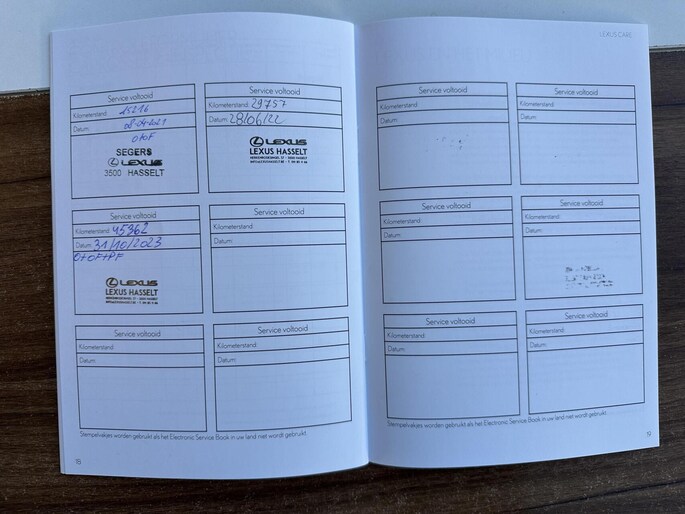 Service voltooid
Kilometerstand: 25216
Datum: 08-04-2021
O+OF
SEGERS
LEXUS
3500 HASSELT
Service voltooid
Kilometerstand: 29757
Datum: 28/06/22
LEXUS
LEXUS HASSELT
Service voltooid
Kilometerstand: 45962
Datum: 31/10/2023
O+OF+PF
LEXUS
LEXUS HASSELT
Service voltooid
Kilometerstand:
Datum:
Service voltooid
Kilometerstand:
Datum:
Service voltooid
Kilometerstand:
Datum:
Stempelvakjes worden gebruikt als het Electronic Service Book in uw land niet wordt gebruikt.
18
LEXUS CARE
Service voltooid
Kilometerstand:
Datum:
Service voltooid
Kilometerstand:
Datum:
Service voltooid
Kilometerstand:
Datum:
Service voltooid
Kilometerstand:
Datum:
Service voltooid
Kilometerstand:
Datum:
Service voltooid
Kilometerstand:
Datum:
Stempelvakjes worden gebruikt als het Electronic Service Book in uw land niet wordt gebruikt.
19